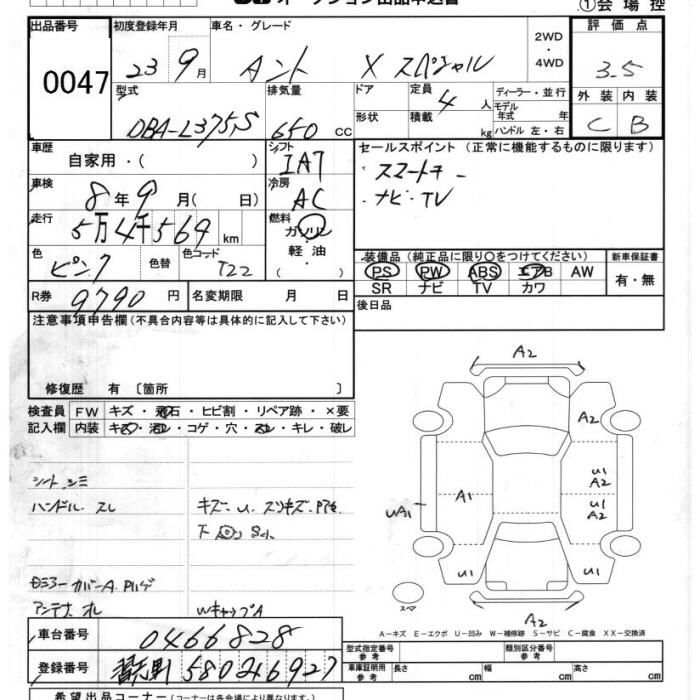 オークション出品申込書
①会場控
出品番号 初度登録年月 車名・グレード 2WD・4WD 評価点
0047 23 9月 タント X スペシャル 3.5
型式 排気量 ドア 定員 ディーラー・並行 外装 内装
DBA-L375S 650 CC 形状 4人 積載 kg モデル年式 年 ハンドル 左・右 C B
車歴 自家用・( ) シフト IAT セールスポイント (正常に機能するものに限ります)
車検 8年9月( 日) 冷房 AC スマートキー
走行 5万4千569 km 燃料 ガソリン・軽油・( ) ナビ・TV
色 ピンク 色替 色コード T22 装備品 (純正品に限り○をつけてください) 新車保証書
PS PW ABS エアB AW 有・無
R券 9790円 名変期限 月 日 SR ナビ TV カワ
注意事項申告欄(不具合内容等は具体的に記入して下さい) 後日品
修復歴 有 〔箇所 〕
検査員 FW キズ・飛石・ヒビ割・リペア跡・×要
記入欄 内装 キズ・汚レ・コゲ・穴・スレ・キレ・破レ
シート シミ
ハンドル スレ
キズー U. スリキズ.
下
カバーA
アンテナ オレ
WキャップA
A2
A2
A1
U1
A2
U1
A2
UA1
U1
U1
A2
スペア
A-キズ E-エクボ U-凹み W-補修跡 S-サビ C-腐食 XX-交換済
車台番号 0466828
型式指定番号 参考 類別区分番号 参考
登録番号 習志野 580 か 6927
車庫証明用 参考 長さ cm 幅 cm 高さ cm
希望出品コーナー (コーナーは各会場により異なります)